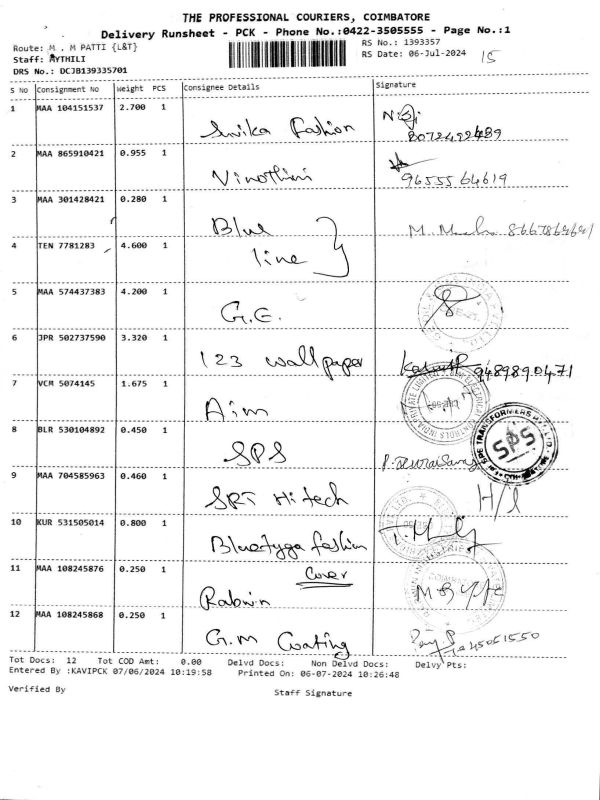 THE PROFESSIONAL COURIERS, COIMBATORE
Delivery Runsheet - PCK - Phone No.:0422-3505555 - Page No.:1
Route: M . M PATTI {L&T}
RS No.: 1393357
Staff: MYTHILI
RS Date: 06-Jul-2024
15
DRS No.: DCJB139335701
S No Consignment No Weight PCS Consignee Details Signature
1 MAA 104151537 2.700 1 Fashion
2 MAA 865910421 0.955 1 Vinothini 9655564619
3 MAA 301428421 0.280 1 Blue
4 TEN 7781283 4.600 1 line
5 MAA 574437383 4.200 1 G.E.
6 JPR 502737590 3.320 1 123 wallpaper 9489890471
7 VCM 5074145 1.675 1 Aim
8 BLR 530104892 0.450 1 SPS SPS
9 MAA 704585963 0.460 1 SRT Hitech H/L
10 KUR 531505014 0.800 1 Bluetyga fashion
11 MAA 108245876 0.250 1 Cover
12 MAA 108245868 0.250 1 G.M Coating
Tot Docs: 12 Tot COD Amt: 0.00 Delvd Docs: Non Delvd Docs: Delvy Pts:
Entered By :KAVIPCK 07/06/2024 10:19:58 Printed On: 06-07-2024 10:26:48
Verified By Staff Signature